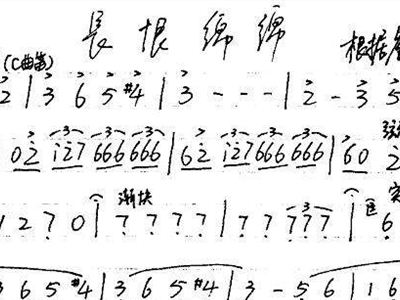 長恨綿綿
(C曲笛) 根据
2 | 3 6 5 #4 | 3 - - - | 2 - 3 5
02 127 666 666 | 62 127 666 666 | 60 2
渐快
1 2 7 0 | 7 7 7 7 | 7 7 777 | 6
3 6 5 #4 | 3 6 5 #4 | 3 - 5 6 | 1 6